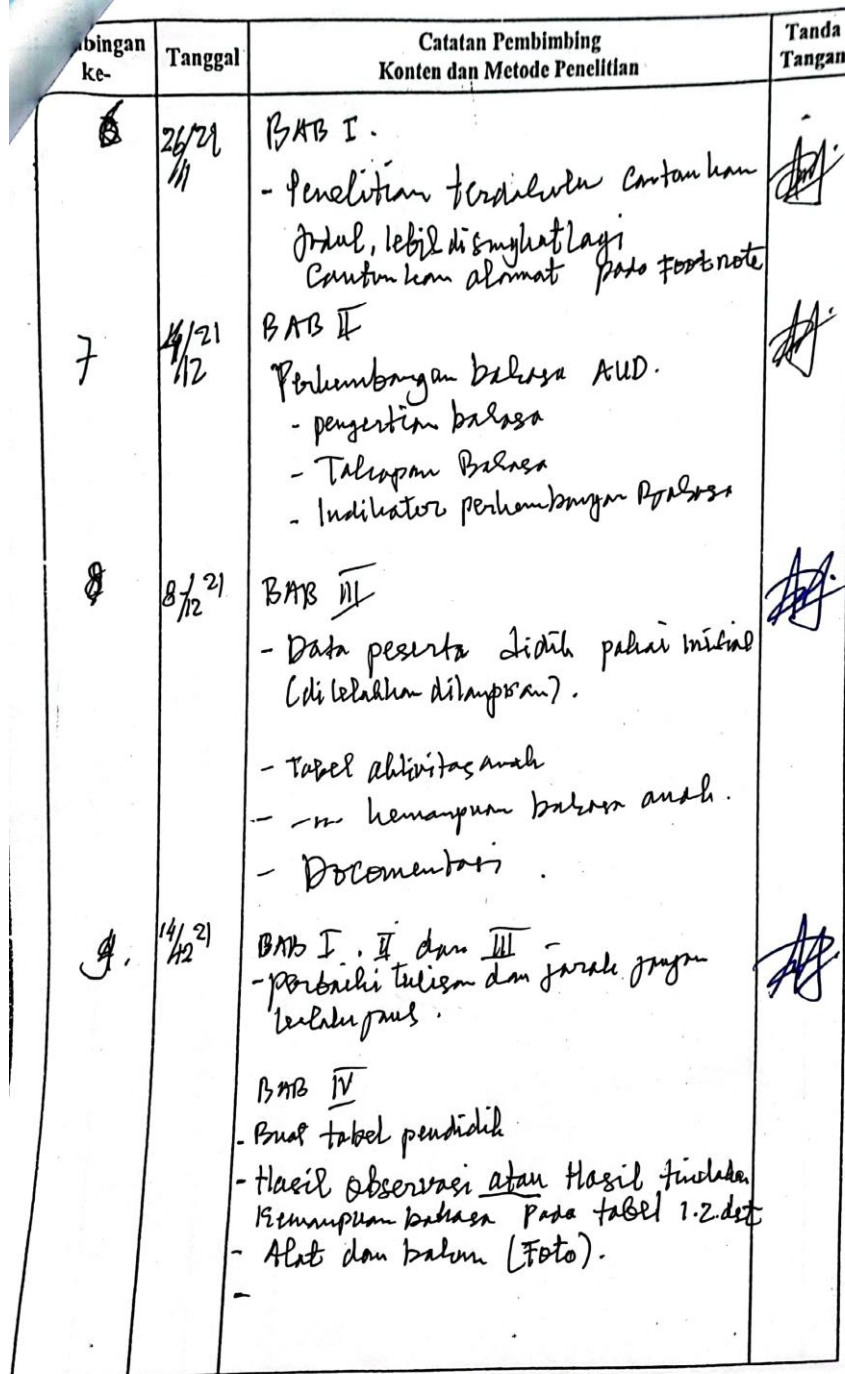 bingan
ke-
Tanggal
Catatan Pembimbing
Konten dan Metode Penelitian
Tanda
Tangan
6
26/21
11
BAB I.
- Penelitian terdahulu cantumkan
Judul, lebih disingkat lagi
Cantumkan alamat pada Footnote
7
/21
12
BAB II
Perkembangan bahasa AUD.
- pengertian bahasa
- Tahapan Bahasa
- Indikator perkembangan Bahasa
8
8/12 21
BAB III
- Data peserta didik pakai inisial
(di dilampiran).
- Tabel aktivitas anak
- kemampuan bahasa anak.
- Documentasi.
9.
14/12 21
BAB I. II dan III
- perbaiki tulisan dan jarak jangan
BAB IV
- Buat tabel pendidik
- Hasil observasi atau Hasil tindakan
Kemampuan bahasa Pada tabel 1.2.dst
- Alat dan bahan (Foto).
-